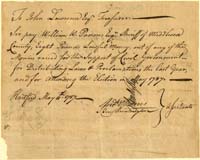 To John Lawrence Esqr Treasurer
Sr pay William W. Parsons Esqr Sheriff of Middlesex
County, Eight Pounds Lawful Money out of any of the
Monies raised for the Support of Civil Government
for Distributing Laws & Proclamations the Last Year,
and for attending the Election in May 1787
Hartford May 1787